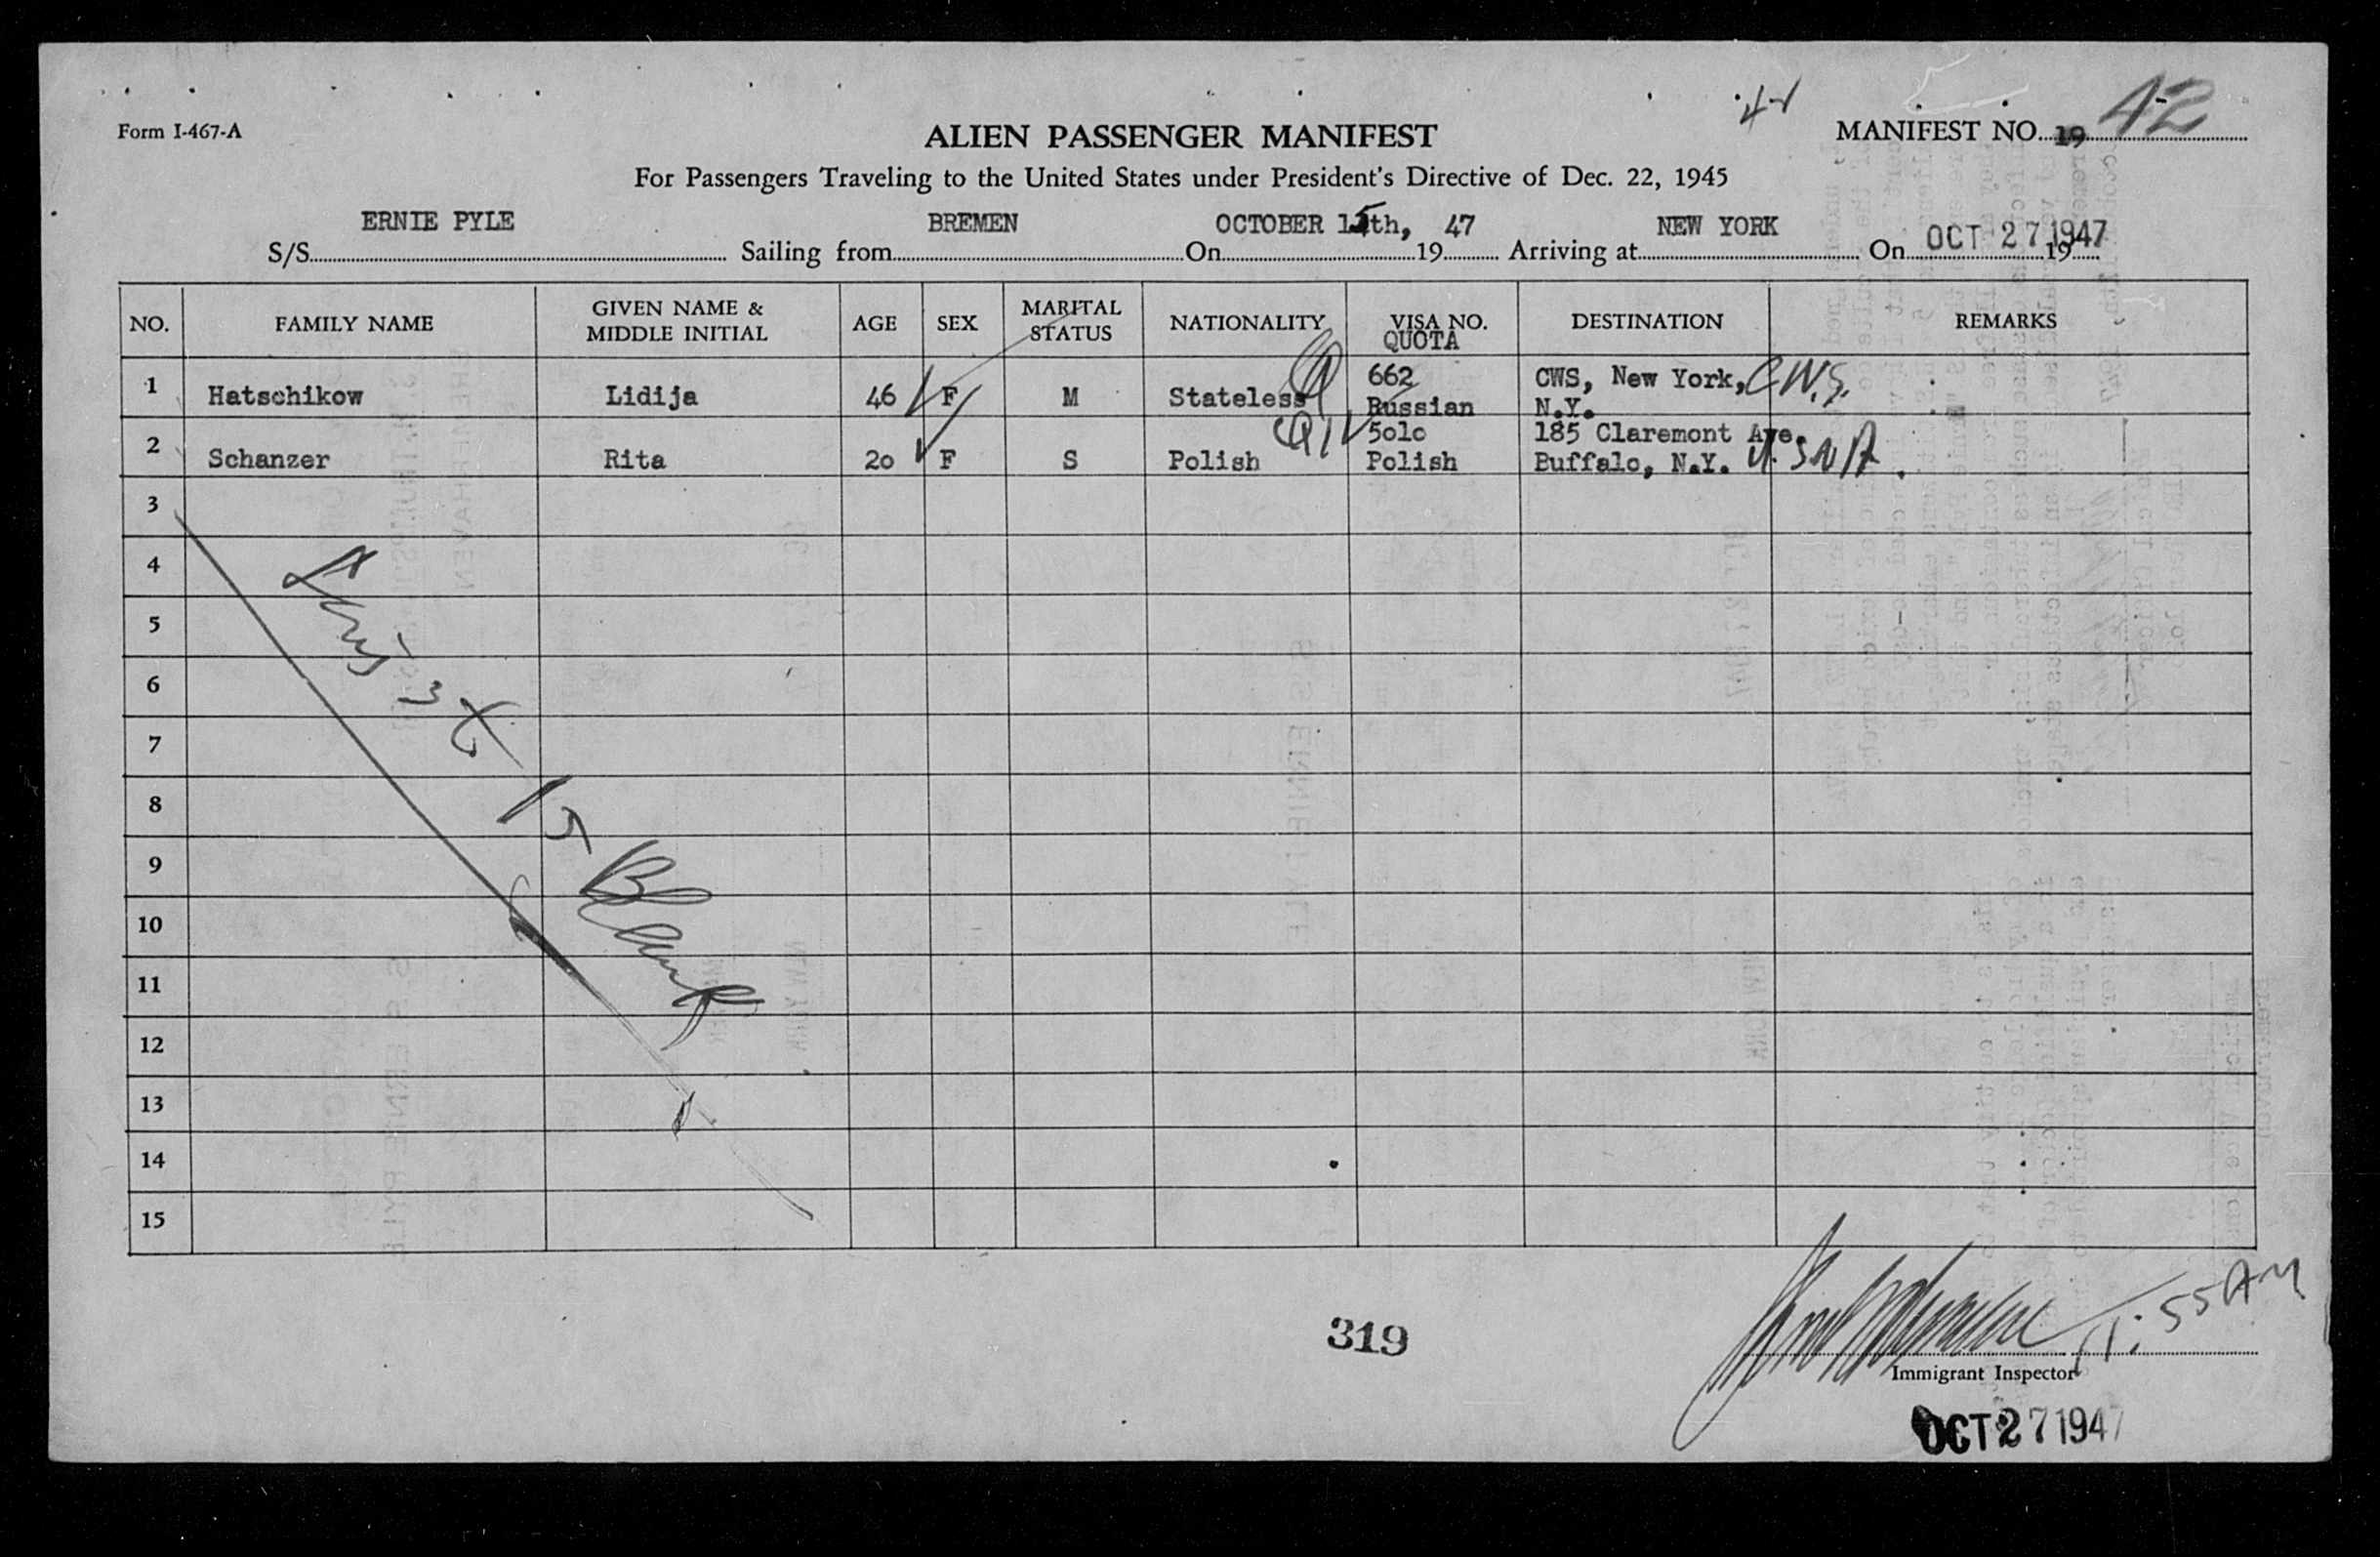 Form I-467-A
ALIEN PASSENGER MANIFEST
MANIFEST NO. 19 42
For Passengers Traveling to the United States under President's Directive of Dec. 22, 1945
S/S ERNIE PYLE Sailing from BREMEN On OCTOBER 15th, 19 47 Arriving at NEW YORK On OCT 27 1947 19
NO. FAMILY NAME GIVEN NAME & MIDDLE INITIAL AGE SEX MARITAL STATUS NATIONALITY VISA NO. QUOTA DESTINATION REMARKS
1 Hatschikow Lidija 46 F M Stateless 662 Russian CWS, New York, N.Y. C.W.S.
2 Schanzer Rita 20 F S Polish 5010 Polish 185 Claremont Ave. Buffalo, N.Y. U.S.N.A.
3
4
5
6
7
8
9
10
11
12
13
14
15
Lines 3 to 15 Blank
319
11:55 AM
Immigrant Inspector
OCT 27 1947